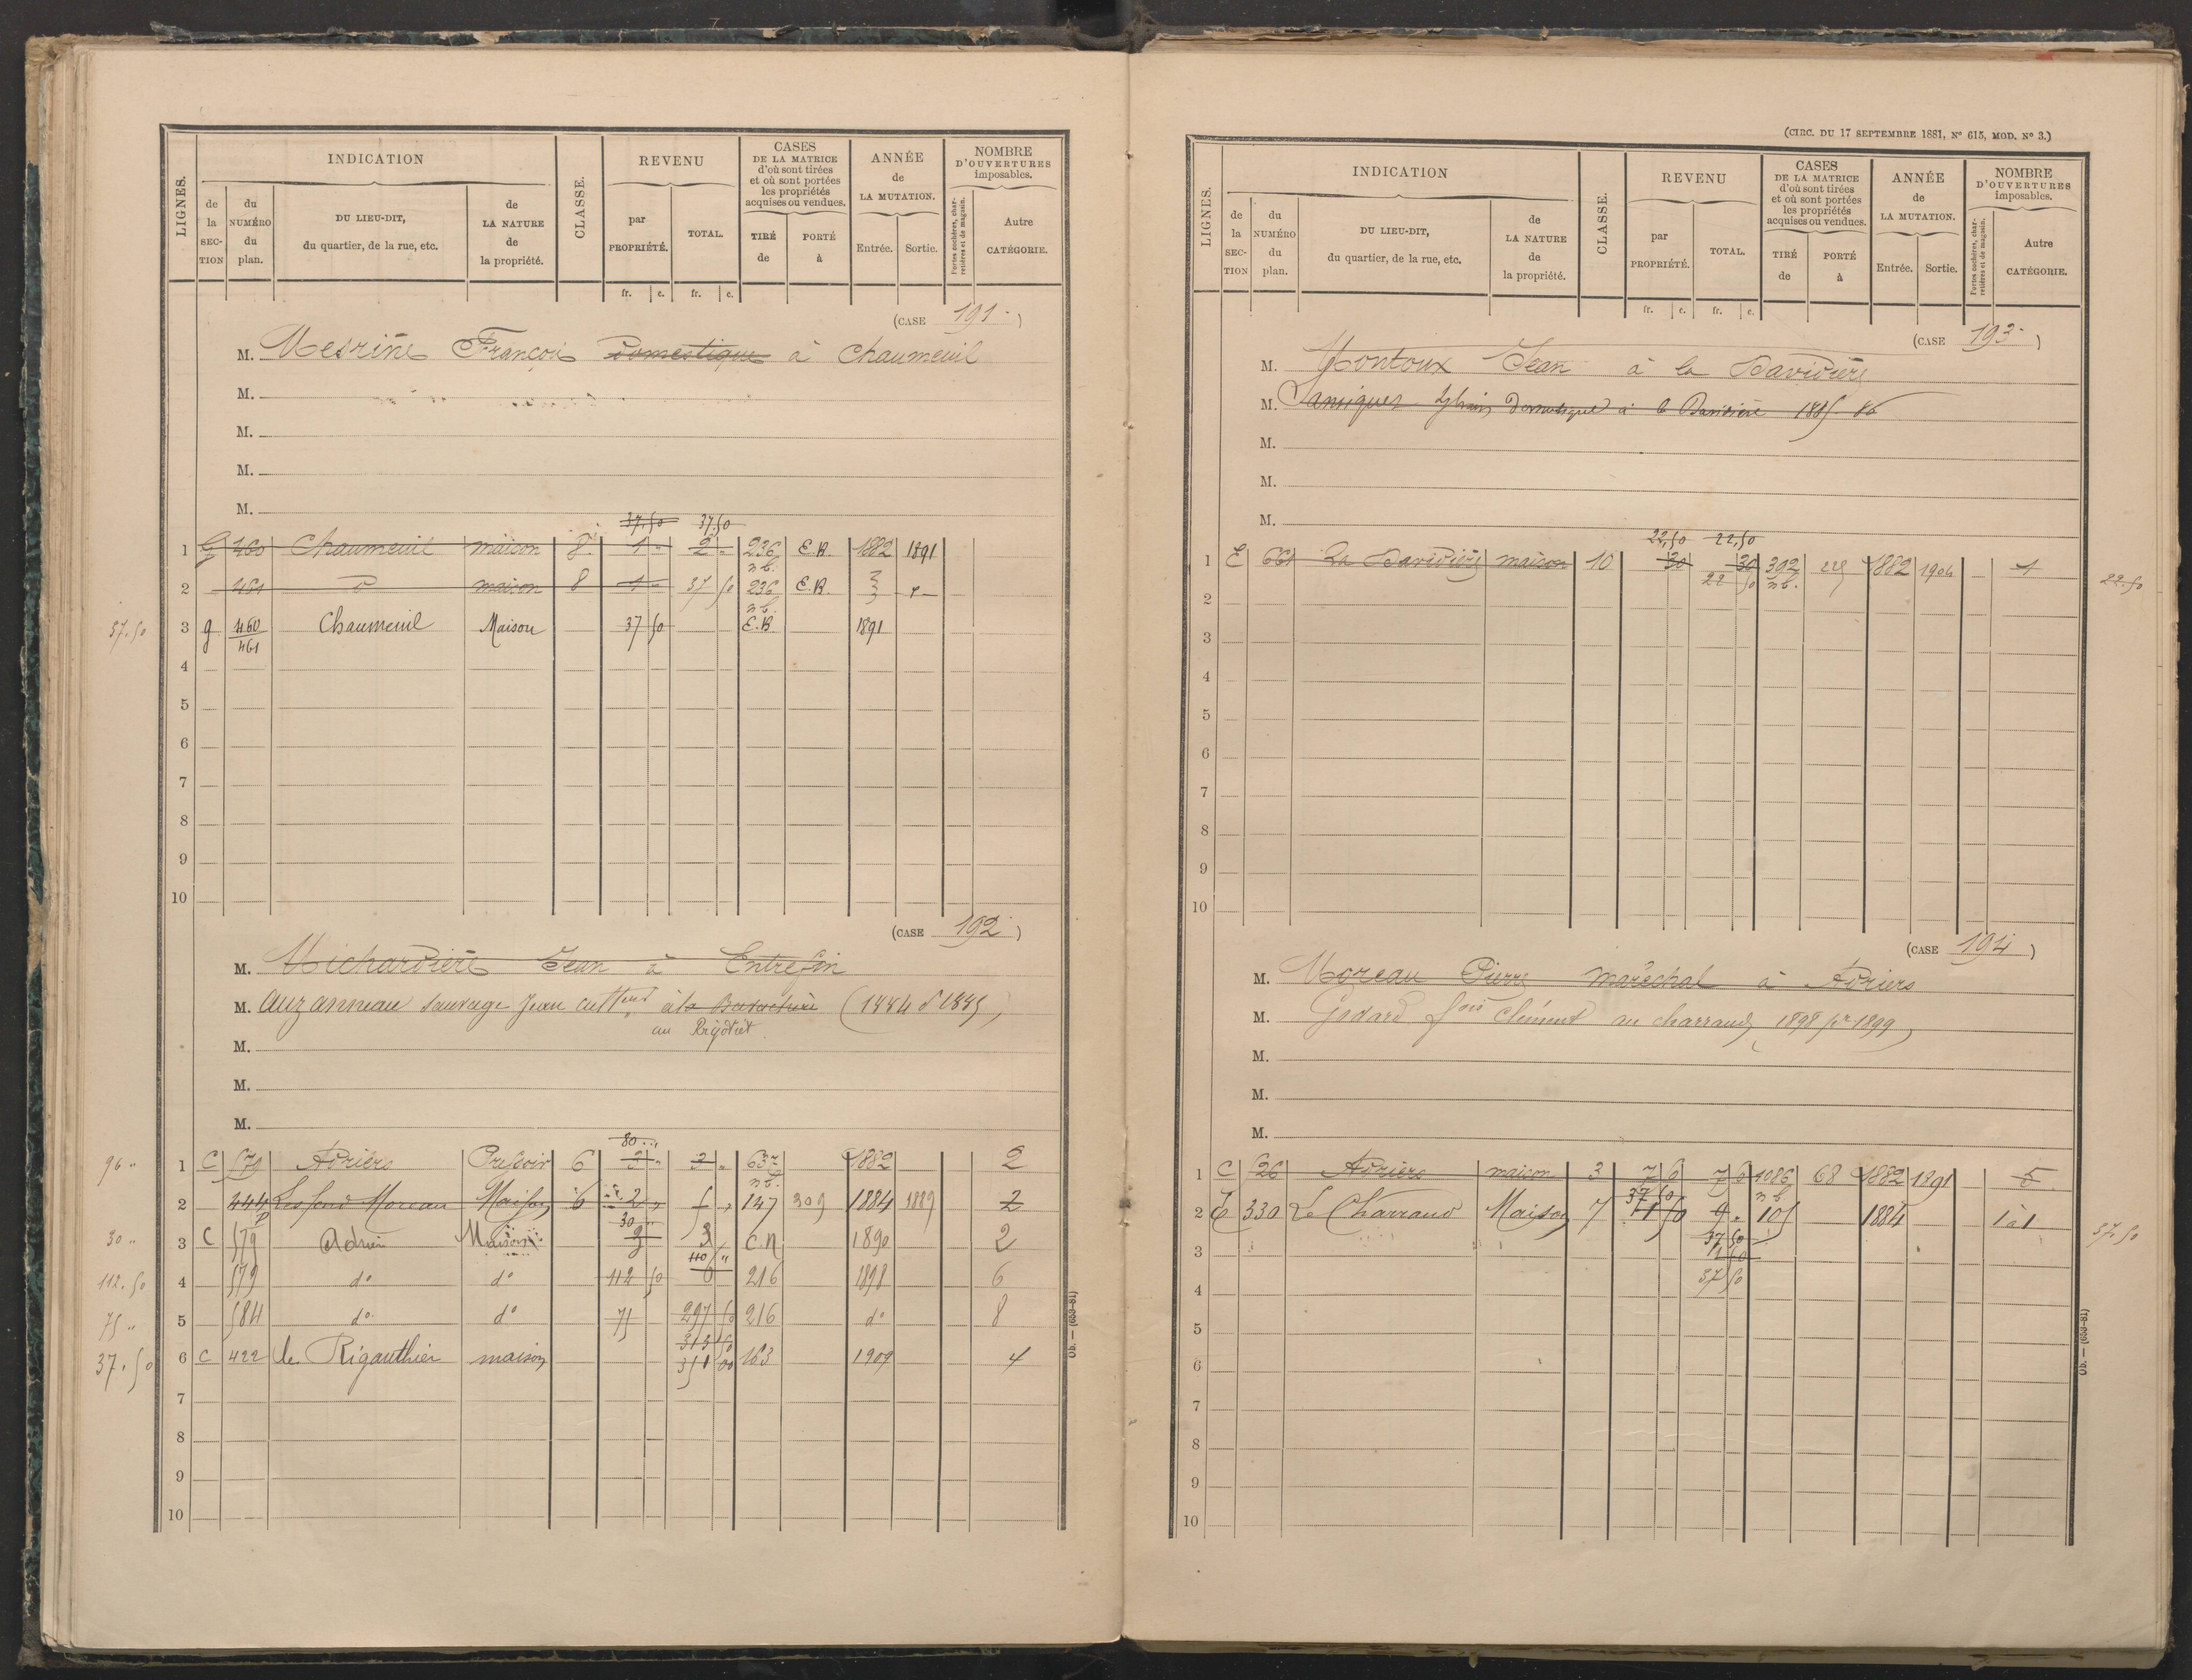 LIGNES.
INDICATION
de la SECTION
du NUMÉRO du plan.
DU LIEU-DIT, du quartier, de la rue, etc.
de LA NATURE de la propriété.
CLASSE.
REVENU
par PROPRIÉTÉ.
TOTAL.
fr. c. fr. c.
CASES DE LA MATRICE d'où sont tirées et où sont portées les propriétés acquises ou vendues.
TIRÉ de
PORTÉ à
ANNÉE de LA MUTATION.
Entrée. Sortie.
NOMBRE D'OUVERTURES imposables.
Portes cochères, charretières et de magasin.
Autre CATÉGORIE.
(CASE 191)
M. Mesrine François Domestique à Chaumeuil
M.
M.
M.
M.
37.50 37.50
1 G 460 Chaumeuil maison 8 1 " 2 " 236 E.B. 1882 1891
n b.
2 461 d° maison 8 1 " 37 50 236 E.B.
n b.
37.50 3 g 460 461 Chaumeuil Maison 37 50 E.B 1891
4
5
6
7
8
9
10
(CASE 192)
M. Michardière Jean à Entrefin
M. Auzanneau Sauvage Jean cult à la (1884 1885)
au
M.
M.
M.
80
96 " 1 C 579 Adriers Pressoir 6 3 " 3 " 1882 2
n b.
2 444 p Les fond Moreau Maison 6 2 " 5 " 147 309 1884 1889 2
30
30 " 3 C 579 Adrier Maison 3 3 C.N 1890 2
110 "
112.50 4 579 d° d° 112 50 6 216 1898 6
75 " 5 584 d° d° 75 297 50 216 d° 8
313 50
37.50 6 C 422 le Rigauthier maison 351 00 163 1909 4
7
8
9
10
Ob. — (653-81)
(CIRC. DU 17 SEPTEMBRE 1881, N° 615, MOD. N° 3.)
LIGNES.
INDICATION
de la SECTION
du NUMÉRO du plan.
DU LIEU-DIT, du quartier, de la rue, etc.
de LA NATURE de la propriété.
CLASSE.
REVENU
par PROPRIÉTÉ.
TOTAL.
fr. c. fr. c.
CASES DE LA MATRICE d'où sont tirées et où sont portées les propriétés acquises ou vendues.
TIRÉ de
PORTÉ à
ANNÉE de LA MUTATION.
Entrée. Sortie.
NOMBRE D'OUVERTURES imposables.
Portes cochères, charretières et de magasin.
Autre CATÉGORIE.
(CASE 193)
M. Montoux Jean à la Davidière
M. Domestique à la Davidière 1885 86
M.
M.
M.
22,50 22,50
1 E 661 La Davidière maison 10 30 30 392 1882 1904 1
22 50 n b. 22.50
2
3
4
5
6
7
8
9
10
(CASE 194)
M. Moreau Pierre maréchal à Adriers
M. Godard fois Clément au charraud, 1898 pr 1899
M.
M.
M.
1 C 526 Adriers maison 3 7 50 7 50 1086 68 1882 1891 5
37 50 n b
2 E 330 Le Charraud Maison 7 1 50 9 " 105 1884 1 à 1 37.50
37 50
3 1 50
37 50
4
5
6
7
8
9
10
Ob. — (653-81)